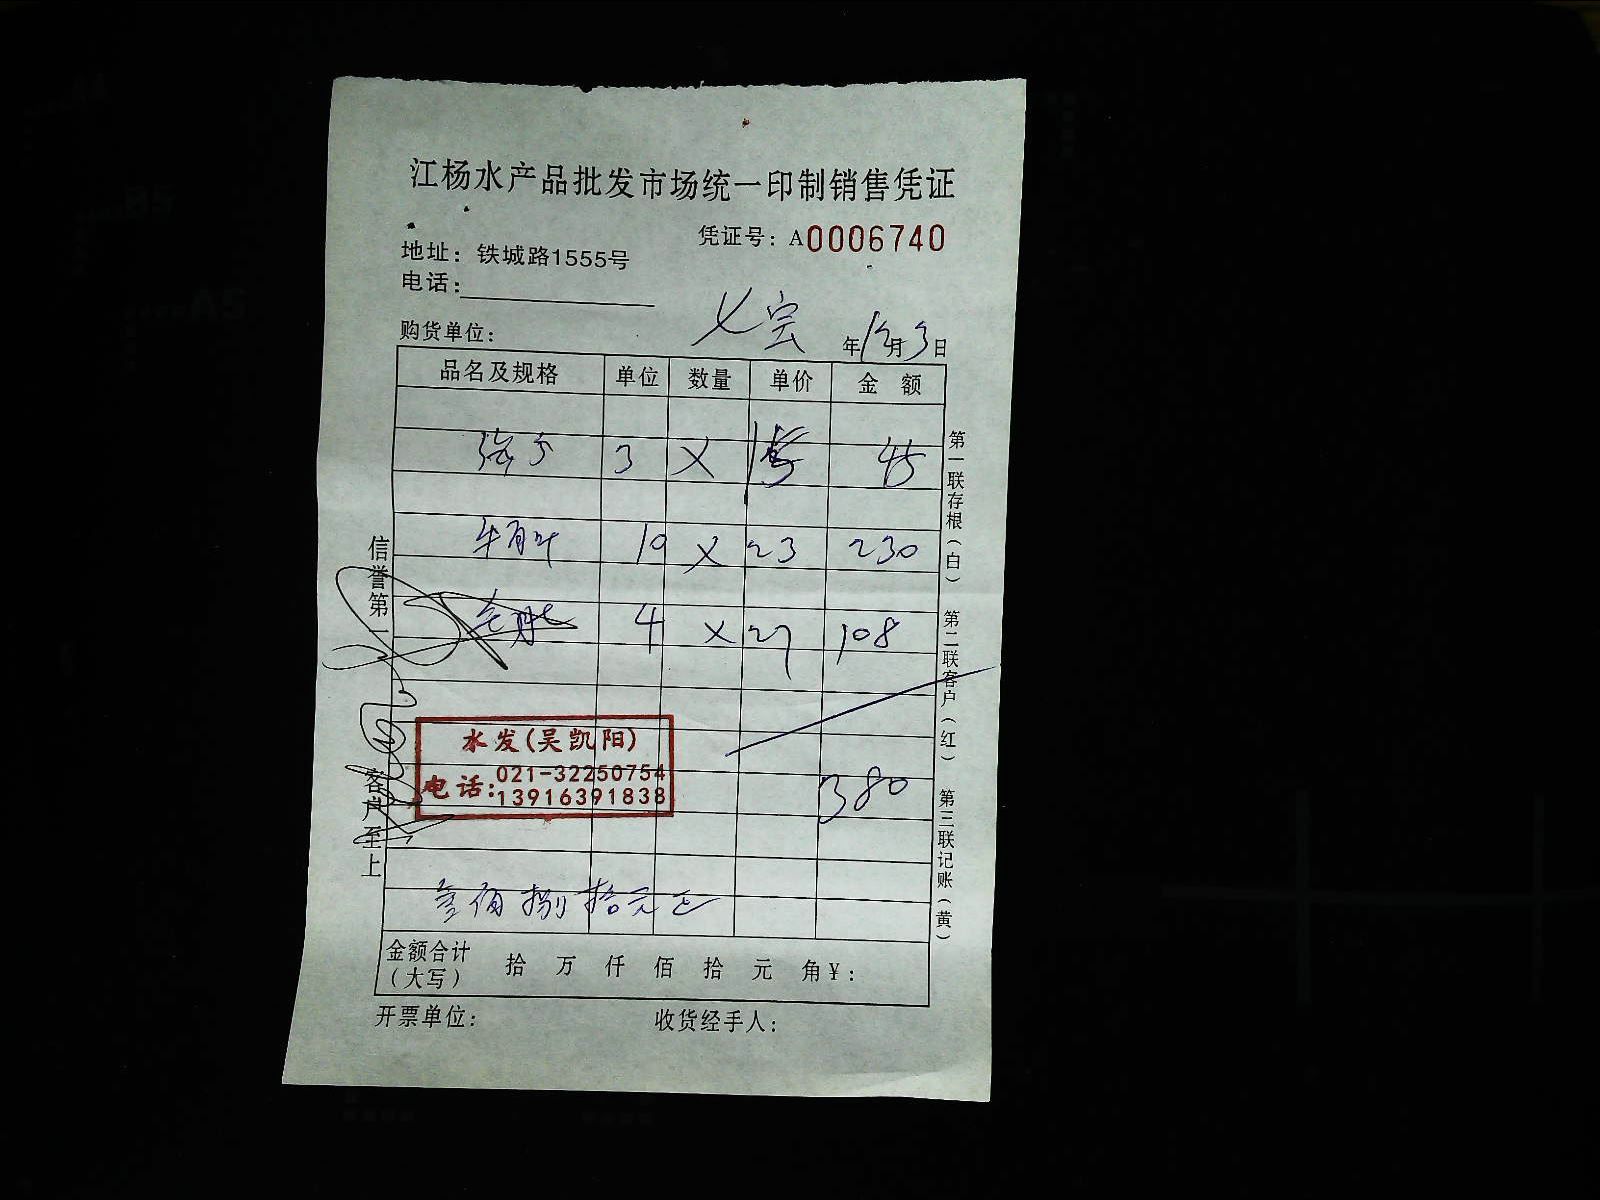 江杨水产品批发市场统一印制销售凭证
凭证号：A0006740
地址：铁城路1555号
电话：
购货单位：
年12月3日
品名及规格 单位 数量 单价 金额
3 × 45
10 × 23 230
4 × 27 108
380
水发(吴凯阳)
电话：021-32250754
13916391838
叁佰捌拾元正
金额合计（大写） 拾 万 仟 佰 拾 元 角 ￥：
开票单位： 收货经手人：
信誉第一 客户至上
第一联存根（白） 第二联客户（红） 第三联记账（黄）